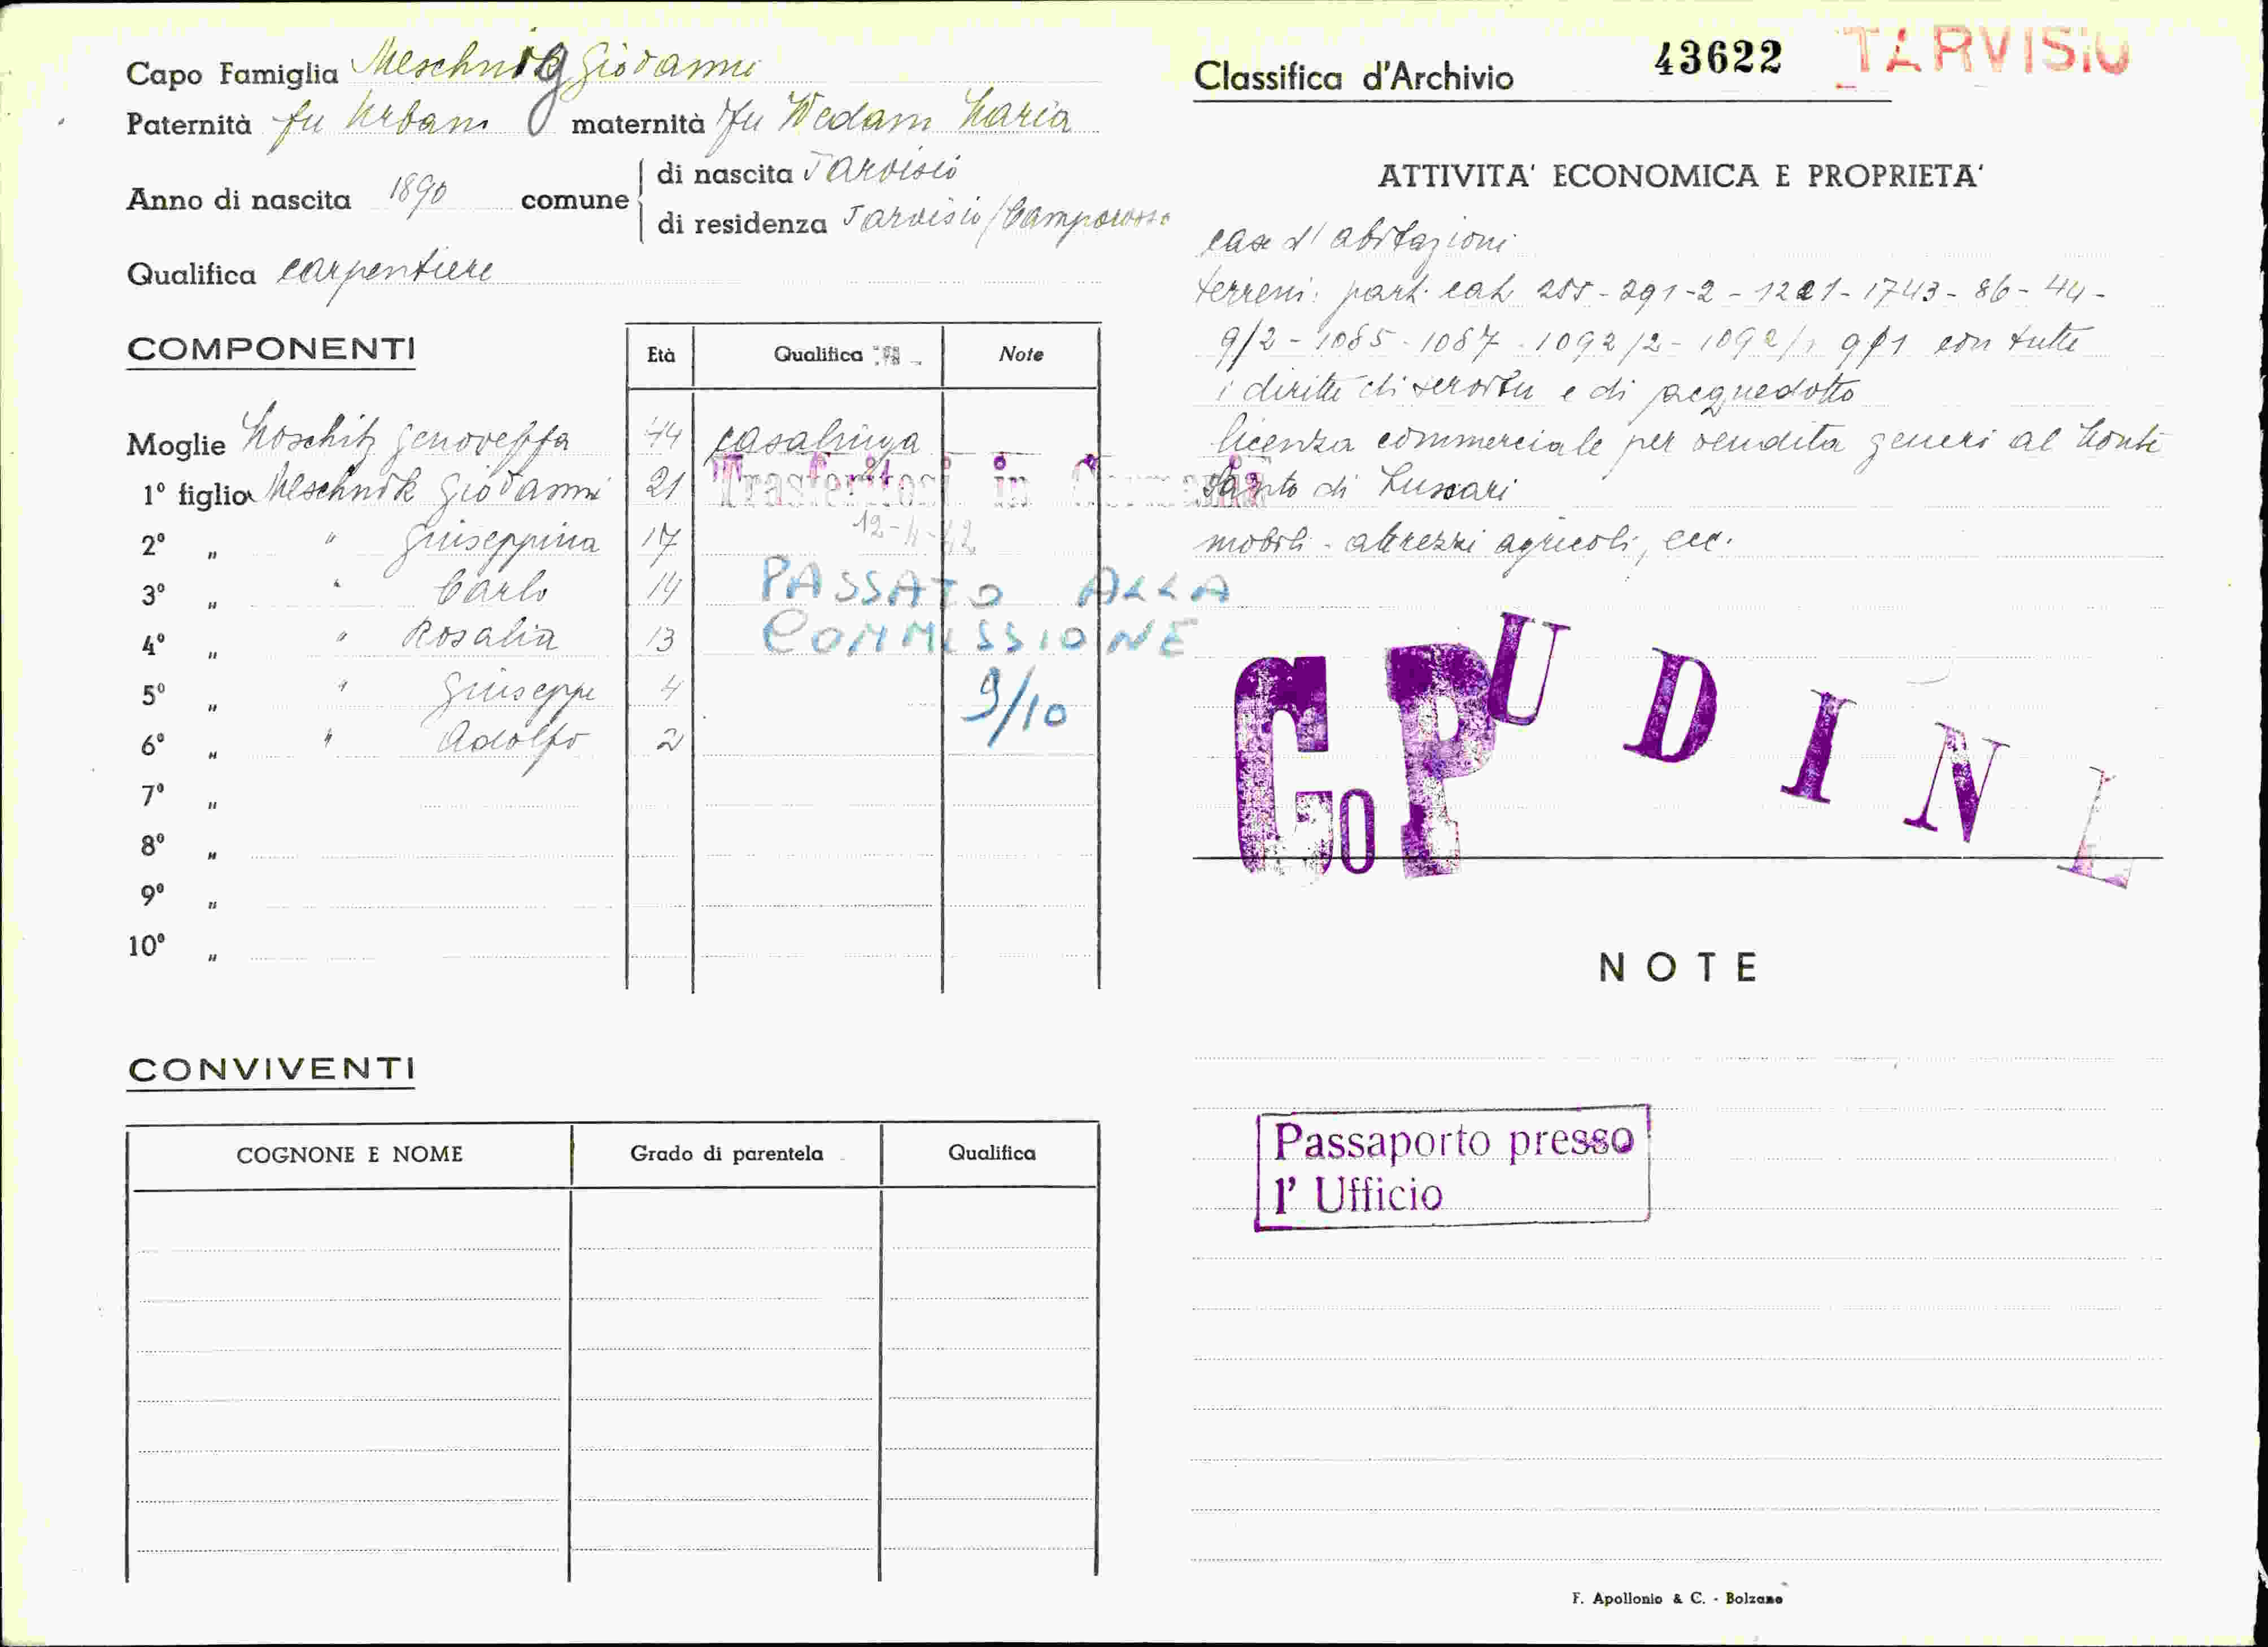 Capo Famiglia Meschnig Giovanni
Paternità fu Urbano maternità fu Wedam Maria
Anno di nascita 1890 comune di nascita Tarvisio
di residenza Tarvisio/Camporosso
Qualifica carpentiere
COMPONENTI
Età Qualifica Note
Moglie Moschitz Genoveffa 44 casalinga
1º figlio Meschnik Giovanni 21
Trasferitosi in Germania
2º „ " Giuseppina 17
12-4-42
3º „ " Carlo 14
PASSATO ALLA
4º „ " Rosalia 13
COMMISSIONE
5º „ " Giuseppe 4
9/10
6º „ " Adolfo 2
7º „
8º „
9º „
10º „
CONVIVENTI
COGNONE E NOME Grado di parentela Qualifica
Classifica d'Archivio 43622 TARVISIO
ATTIVITA' ECONOMICA E PROPRIETA'
case d'abitazioni
terreni: part. cat. 255-291-2-1221-1743-86-44-
9/2-1085-1087-1092/2-1092/1 9/1 con tutti
i diritti di servitu e di acquedotto
licenza commerciale per vendita generi al Monte
Santo di Lussari
mobili - attrezzi agricoli, ecc.
CoP UDINE
NOTE
Passaporto presso
l' Ufficio
F. Apollonio & C. - Bolzano